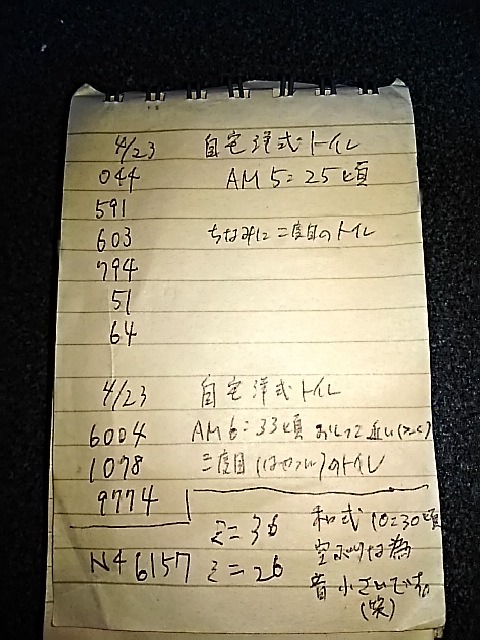 4/23 自宅洋式トイレ
044 AM 5=25頃
591
603 ちなみに二度目のトイレ
794
51
64
4/23 自宅洋式トイレ
6004 AM 6=33頃 おしっこ近い
1078 三度目 のトイレ
9774
和式 10=30頃
2=36
空ぶりな為
N46157 2=26
音小さいですね
(笑)